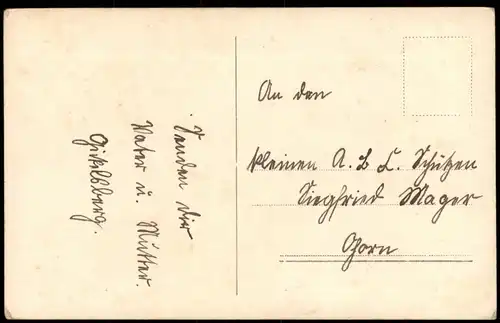 Senden dir
Vater u. Mutter.
Gickelsberg.
An den
kleinen A. B. C. Schützen
Siegfried Mager